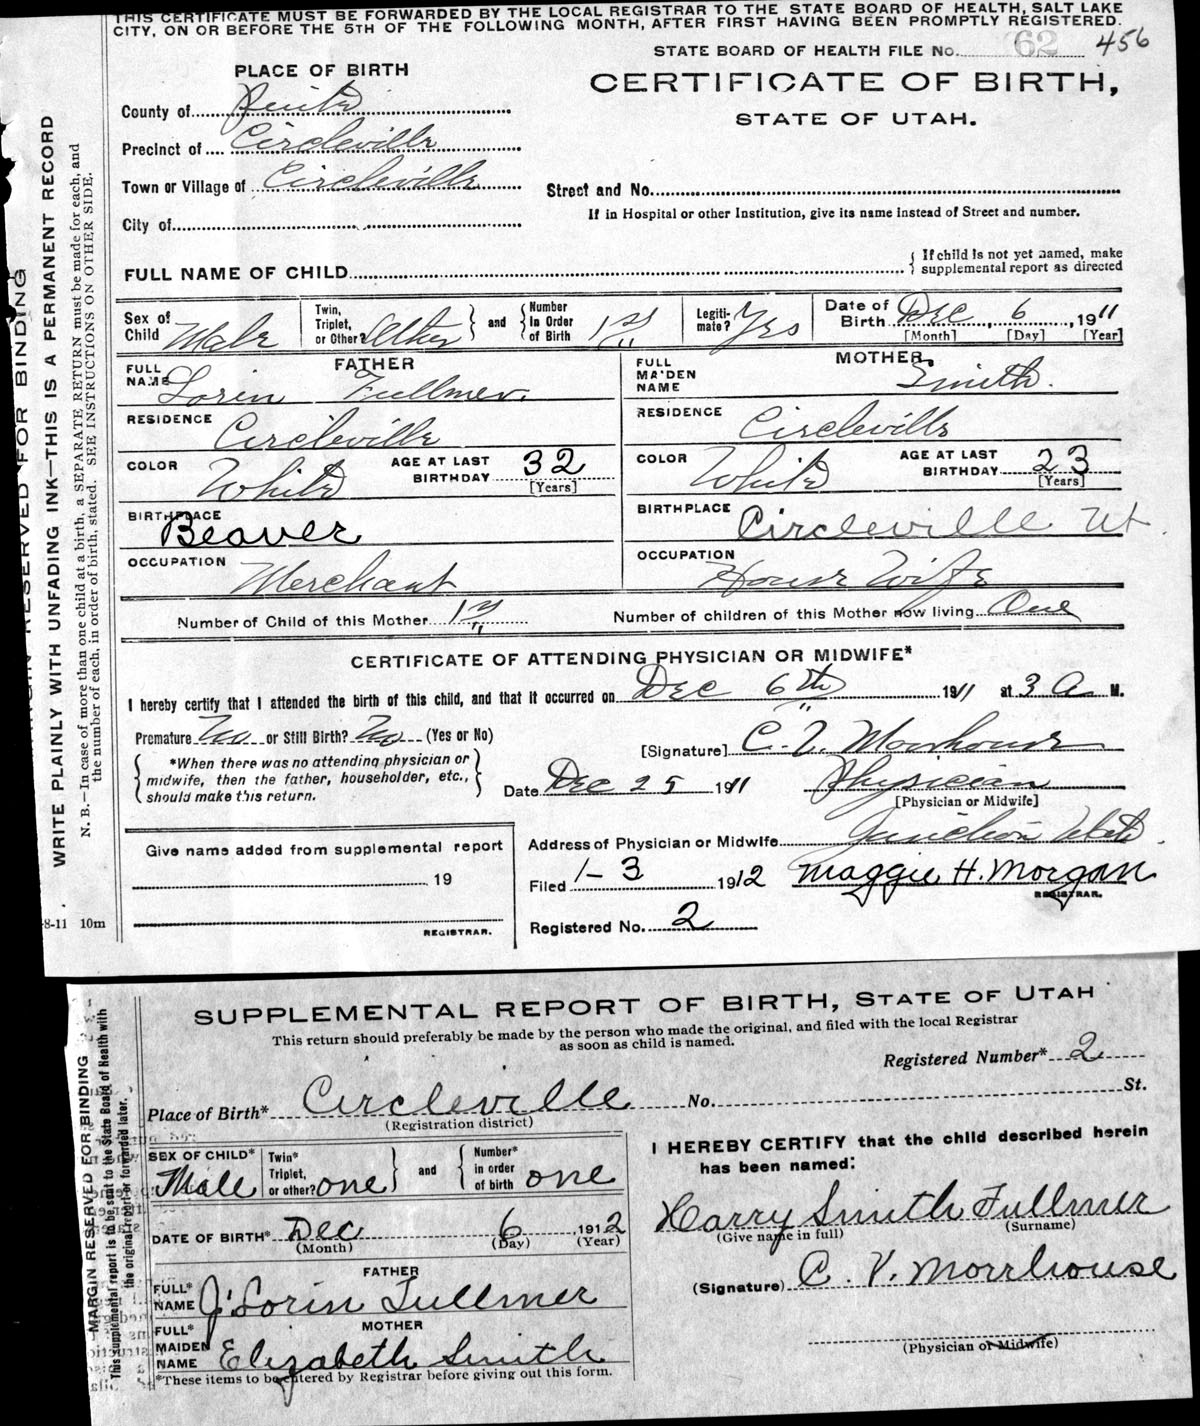 THIS CERTIFICATE MUST BE FORWARDED BY THE LOCAL REGISTRAR TO THE STATE BOARD OF HEALTH, SALT LAKE
CITY, ON OR BEFORE THE 5TH OF THE FOLLOWING MONTH, AFTER FIRST HAVING BEEN PROMPTLY REGISTERED.
STATE BOARD OF HEALTH FILE No. 62 456
PLACE OF BIRTH
CERTIFICATE OF BIRTH,
STATE OF UTAH.
County of Piute
Precinct of Circleville
Town or Village of Circleville
Street and No.
If in Hospital or other Institution, give its name instead of Street and number.
City of
FULL NAME OF CHILD { If child is not yet named, make supplemental report as directed
Sex of Child Male Twin, Triplet, or Other? Other } and { Number In Order of Birth 1st Legiti-mate? Yes Date of Birth Dec 6, 1911
[Month] [Day] [Year]
FATHER
FULL NAME Lorin Fullmer.
RESIDENCE Circleville
COLOR White AGE AT LAST BIRTHDAY 32 [Years]
BIRTHPLACE Beaver
OCCUPATION Merchant
MOTHER
FULL MAIDEN NAME Smith.
RESIDENCE Circleville
COLOR White AGE AT LAST BIRTHDAY 23 [Years]
BIRTHPLACE Circleville Ut.
OCCUPATION House Wife
Number of Child of this Mother 1st Number of children of this Mother now living One
CERTIFICATE OF ATTENDING PHYSICIAN OR MIDWIFE*
I hereby certify that I attended the birth of this child, and that it occurred on Dec 6th 1911 at 3 A M.
Premature No or Still Birth? No (Yes or No)
*When there was no attending physician or
midwife, then the father, householder, etc.,
should make this return.
[Signature] C. V. Morrhouse
Date Dec 25 1911 Physician
[Physician or Midwife]
Address of Physician or Midwife Junction Utah.
Filed 1-3 1912 Maggie H. Morgan
REGISTRAR.
Registered No. 2
Give name added from supplemental report
19
REGISTRAR.
8-11 10m
MARGIN RESERVED FOR BINDING
WRITE PLAINLY WITH UNFADING INK—THIS IS A PERMANENT RECORD
N. B.—In case of more than one child at a birth, a SEPARATE RETURN must be made for each, and
the number of each, in order of birth, stated. SEE INSTRUCTIONS ON OTHER SIDE.
SUPPLEMENTAL REPORT OF BIRTH, STATE OF UTAH
This return should preferably be made by the person who made the original, and filed with the local Registrar
as soon as child is named.
Registered Number* 2
Place of Birth* Circleville No. St.
(Registration district)
SEX OF CHILD* Male Twin* Triplet, or other? one } and { Number* in order of birth one
DATE OF BIRTH* Dec 6 1912
(Month) (Day) (Year)
FATHER
FULL* NAME J. Lorin Fullmer
MOTHER
FULL* MAIDEN NAME Elizabeth Smith
*These items to be entered by Registrar before giving out this form.
I HEREBY CERTIFY that the child described herein
has been named:
Harry Smith Fullmer
(Give name in full) (Surname)
(Signature) C. V. Morrhouse
(Physician or Midwife)
MARGIN RESERVED FOR BINDING
This supplemental report is to be sent to the State Board of Health with
the original report or forwarded later.